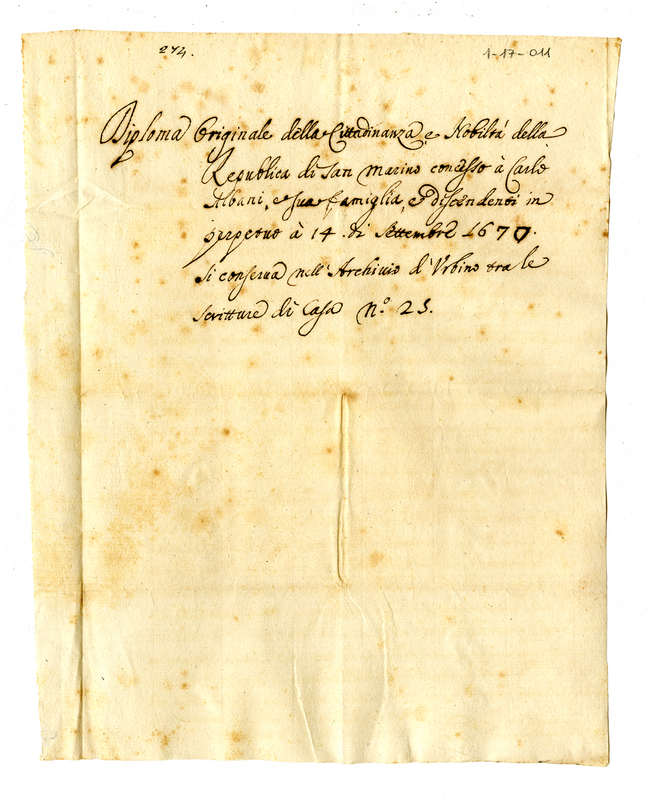 274.
1-17-011
Diploma Originale della Cittadinanza, e Nobiltà della
Republica di San Marino concesso à Carlo
Albani, e sua famiglia, e Discendenti in
perpetuo à 14. di Settembre 1670.
Si conserva nell'Archivio d'Urbino tra le
scritture di Casa N.º 25.